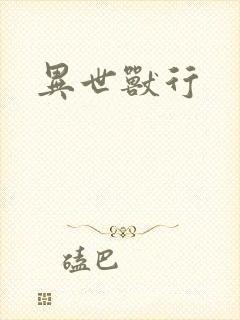 異世獸行
磕巴